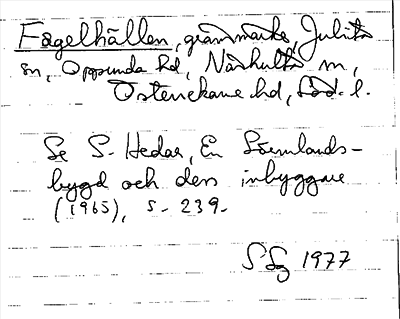 Fagelhällen, gränsmärke, Julita
sn, Oppunda hd, Näshulta sn,
Österrekarne hd, Söd. l.
Se S. Hedar, En Sörmlands-
bygd och dess inbyggare
(1965), s. 239.
1977